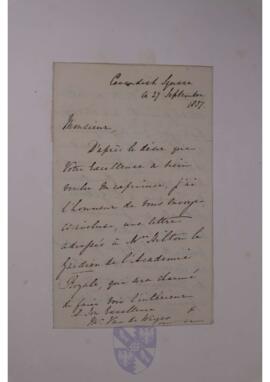 Cavendish Square
le 27 Septembre
1837.
Monsieur,
D'après le désir que
Votre Excellence a bien
voulu m'exprimer, j'ai
l'honneur de vous envoyer
ci-incluse, une lettre
adressée à Mr Hilton le
Gardien de l'Académie
Royale, qui sera charmé
de faire voir l'intérieur
à Son Excellence
Mr Van de Weyer